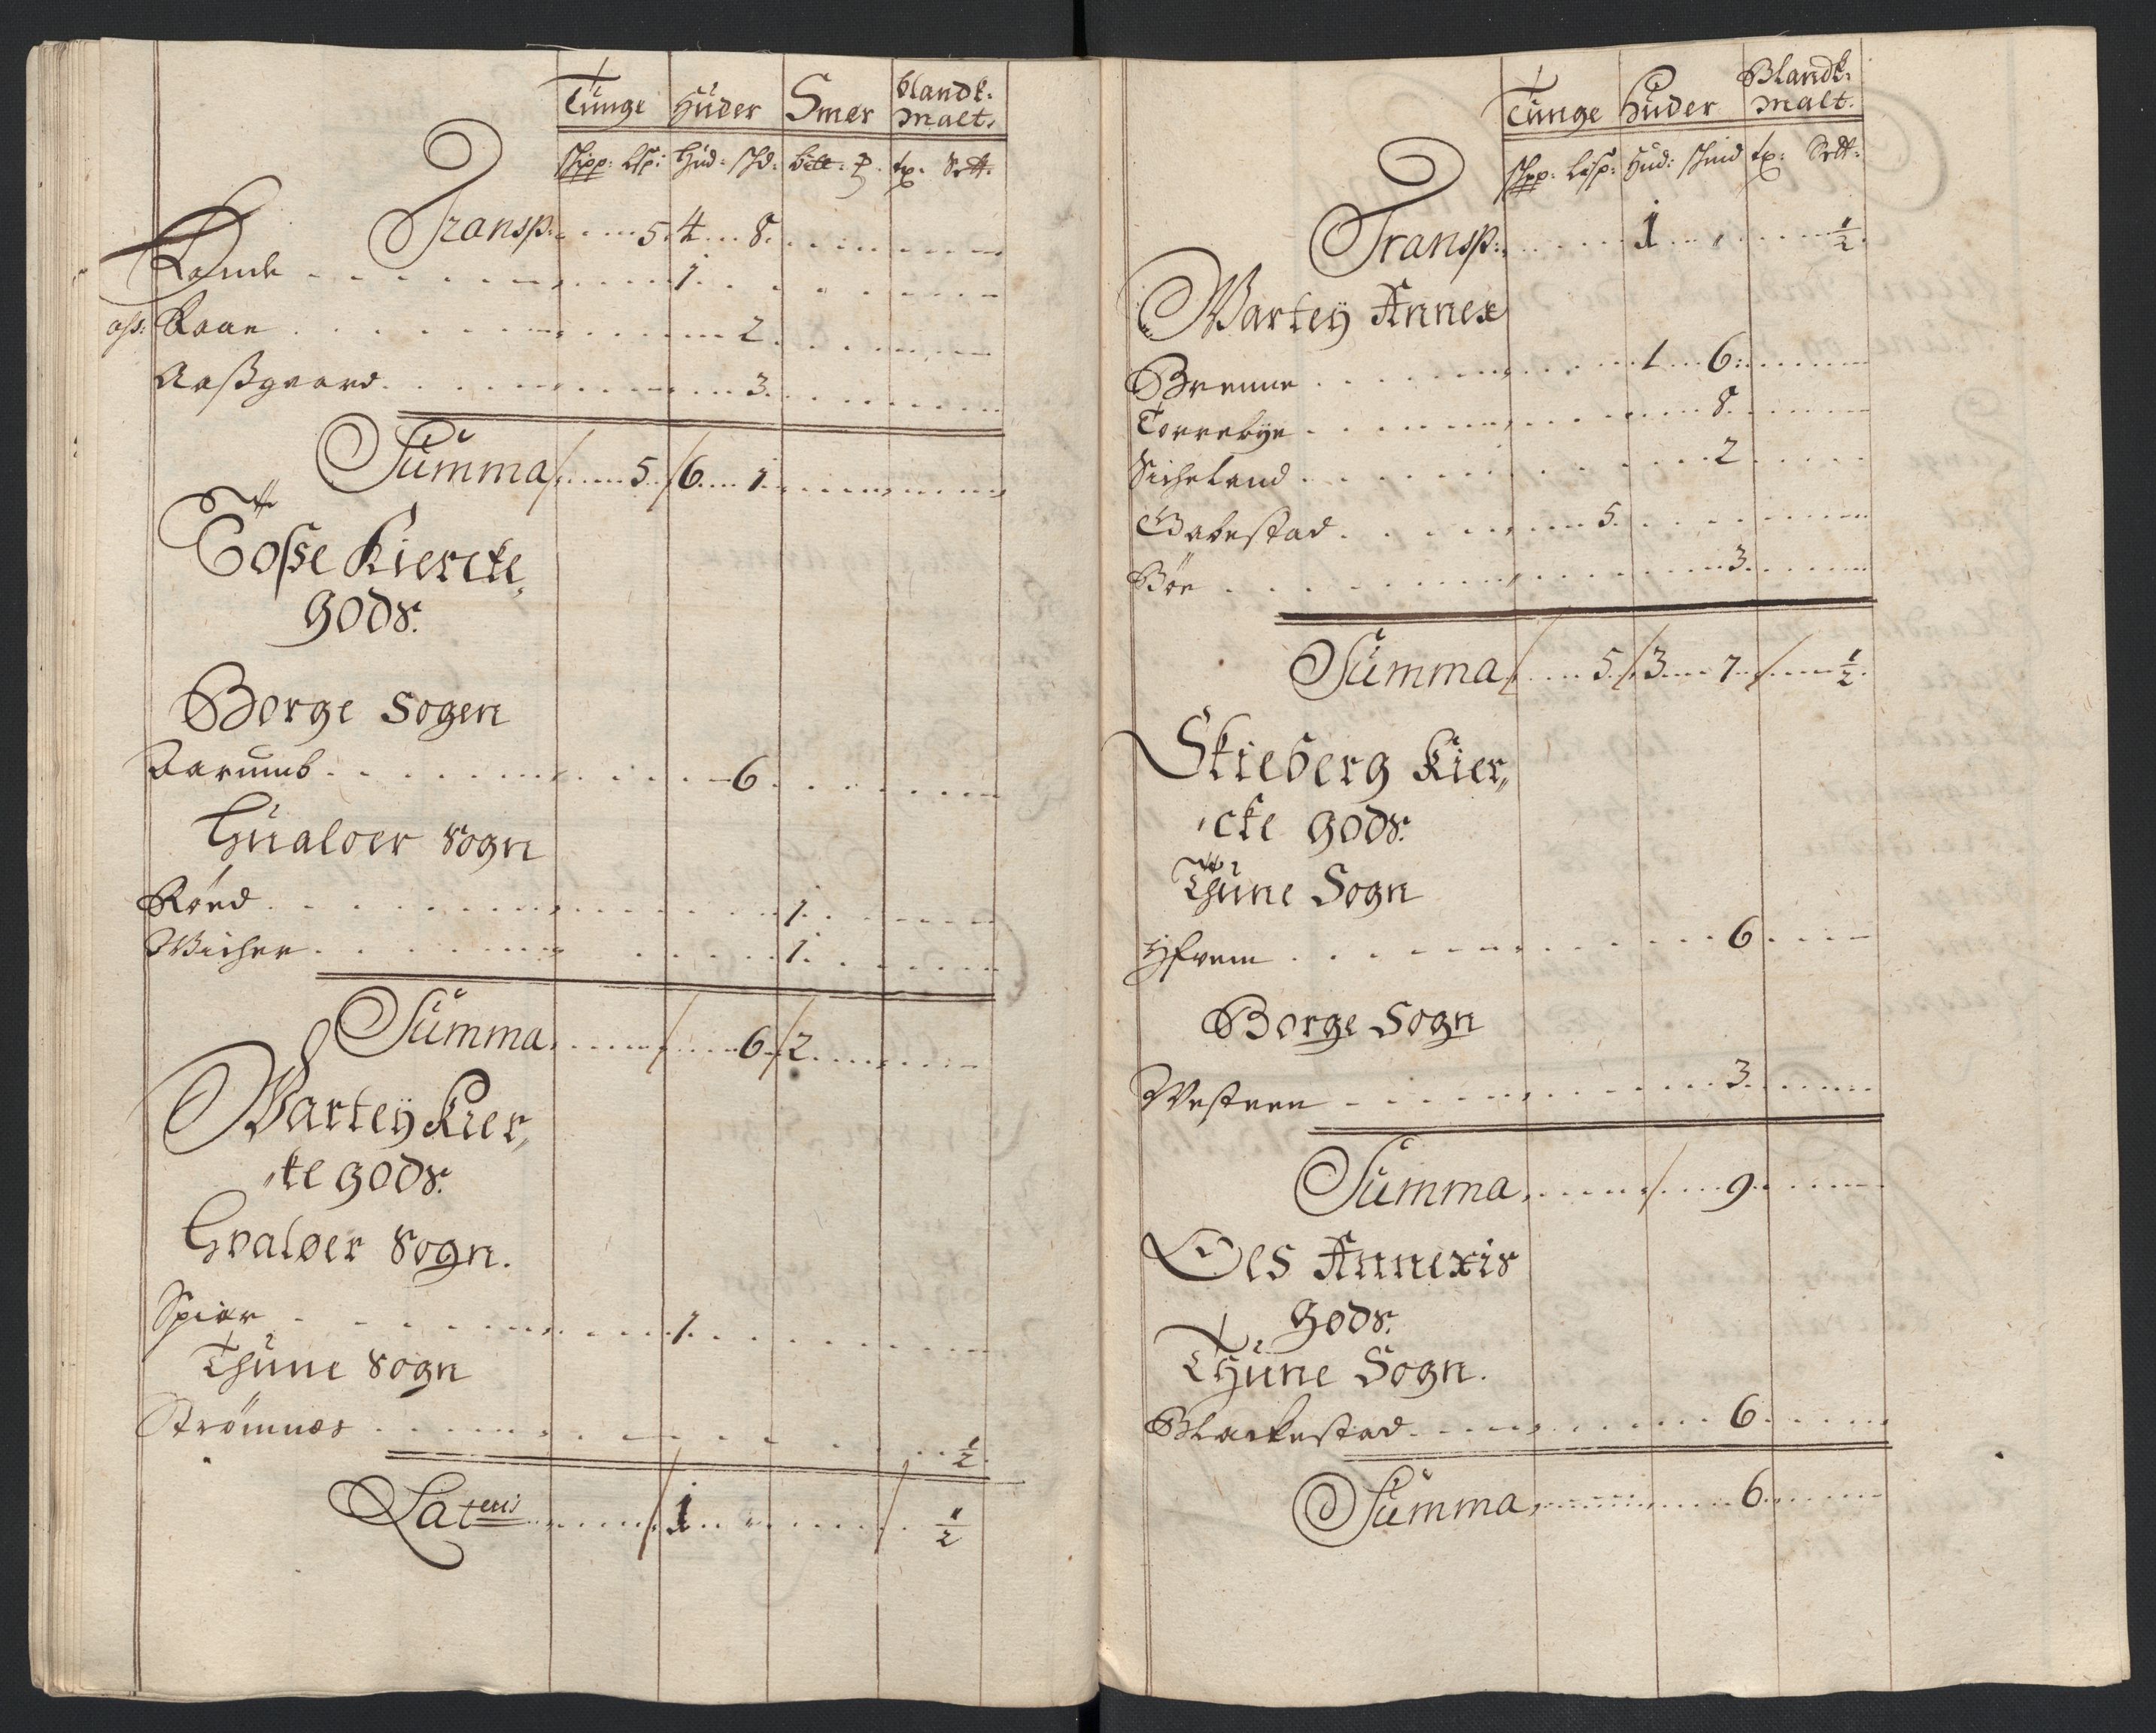 Tunge Huder Smer blandk:
Malt.
Skpp: Lisp: Hud: skd: bitt: ℔. tp. Sett:
Transp: 5. 4. 8.
Rande 1.
Kaae 2.
Aaßgaard. 3.
Summa 5. 6. 1.
Tosse Kiercke
gods.
Borge Sogen
Aarumb. 6.
Hualöer Sogn
Röed. 1.
Wicher. 1.
Summa 6. 2.
Warteÿ Kier„
„ke gods.
Hvaløer Sogn.
Spiær 1.
Thune Sogn
Strömnes ½.
Lateris 1. „ ½
Tunge Huder Blandk:
Malt.
Skpp: Lisp: Hud: skind tp: Sett:
Transp: 1. „ ½.
Warteÿ Annex
Brenne 1. 6.
Torrebÿe 8.
Sicheland 2.
Gabestad. 5.
Böe 3.
Summa 5. 3. 7. ½.
Skieberg Kier„
„cke gods.
Thune Sogn
Hfrem 6.
Borge Sogn
Westren 3.
Summa 9.
Oes Annexis
gods.
Thune Sogn.
Blackestad. 6.
Summa 6.